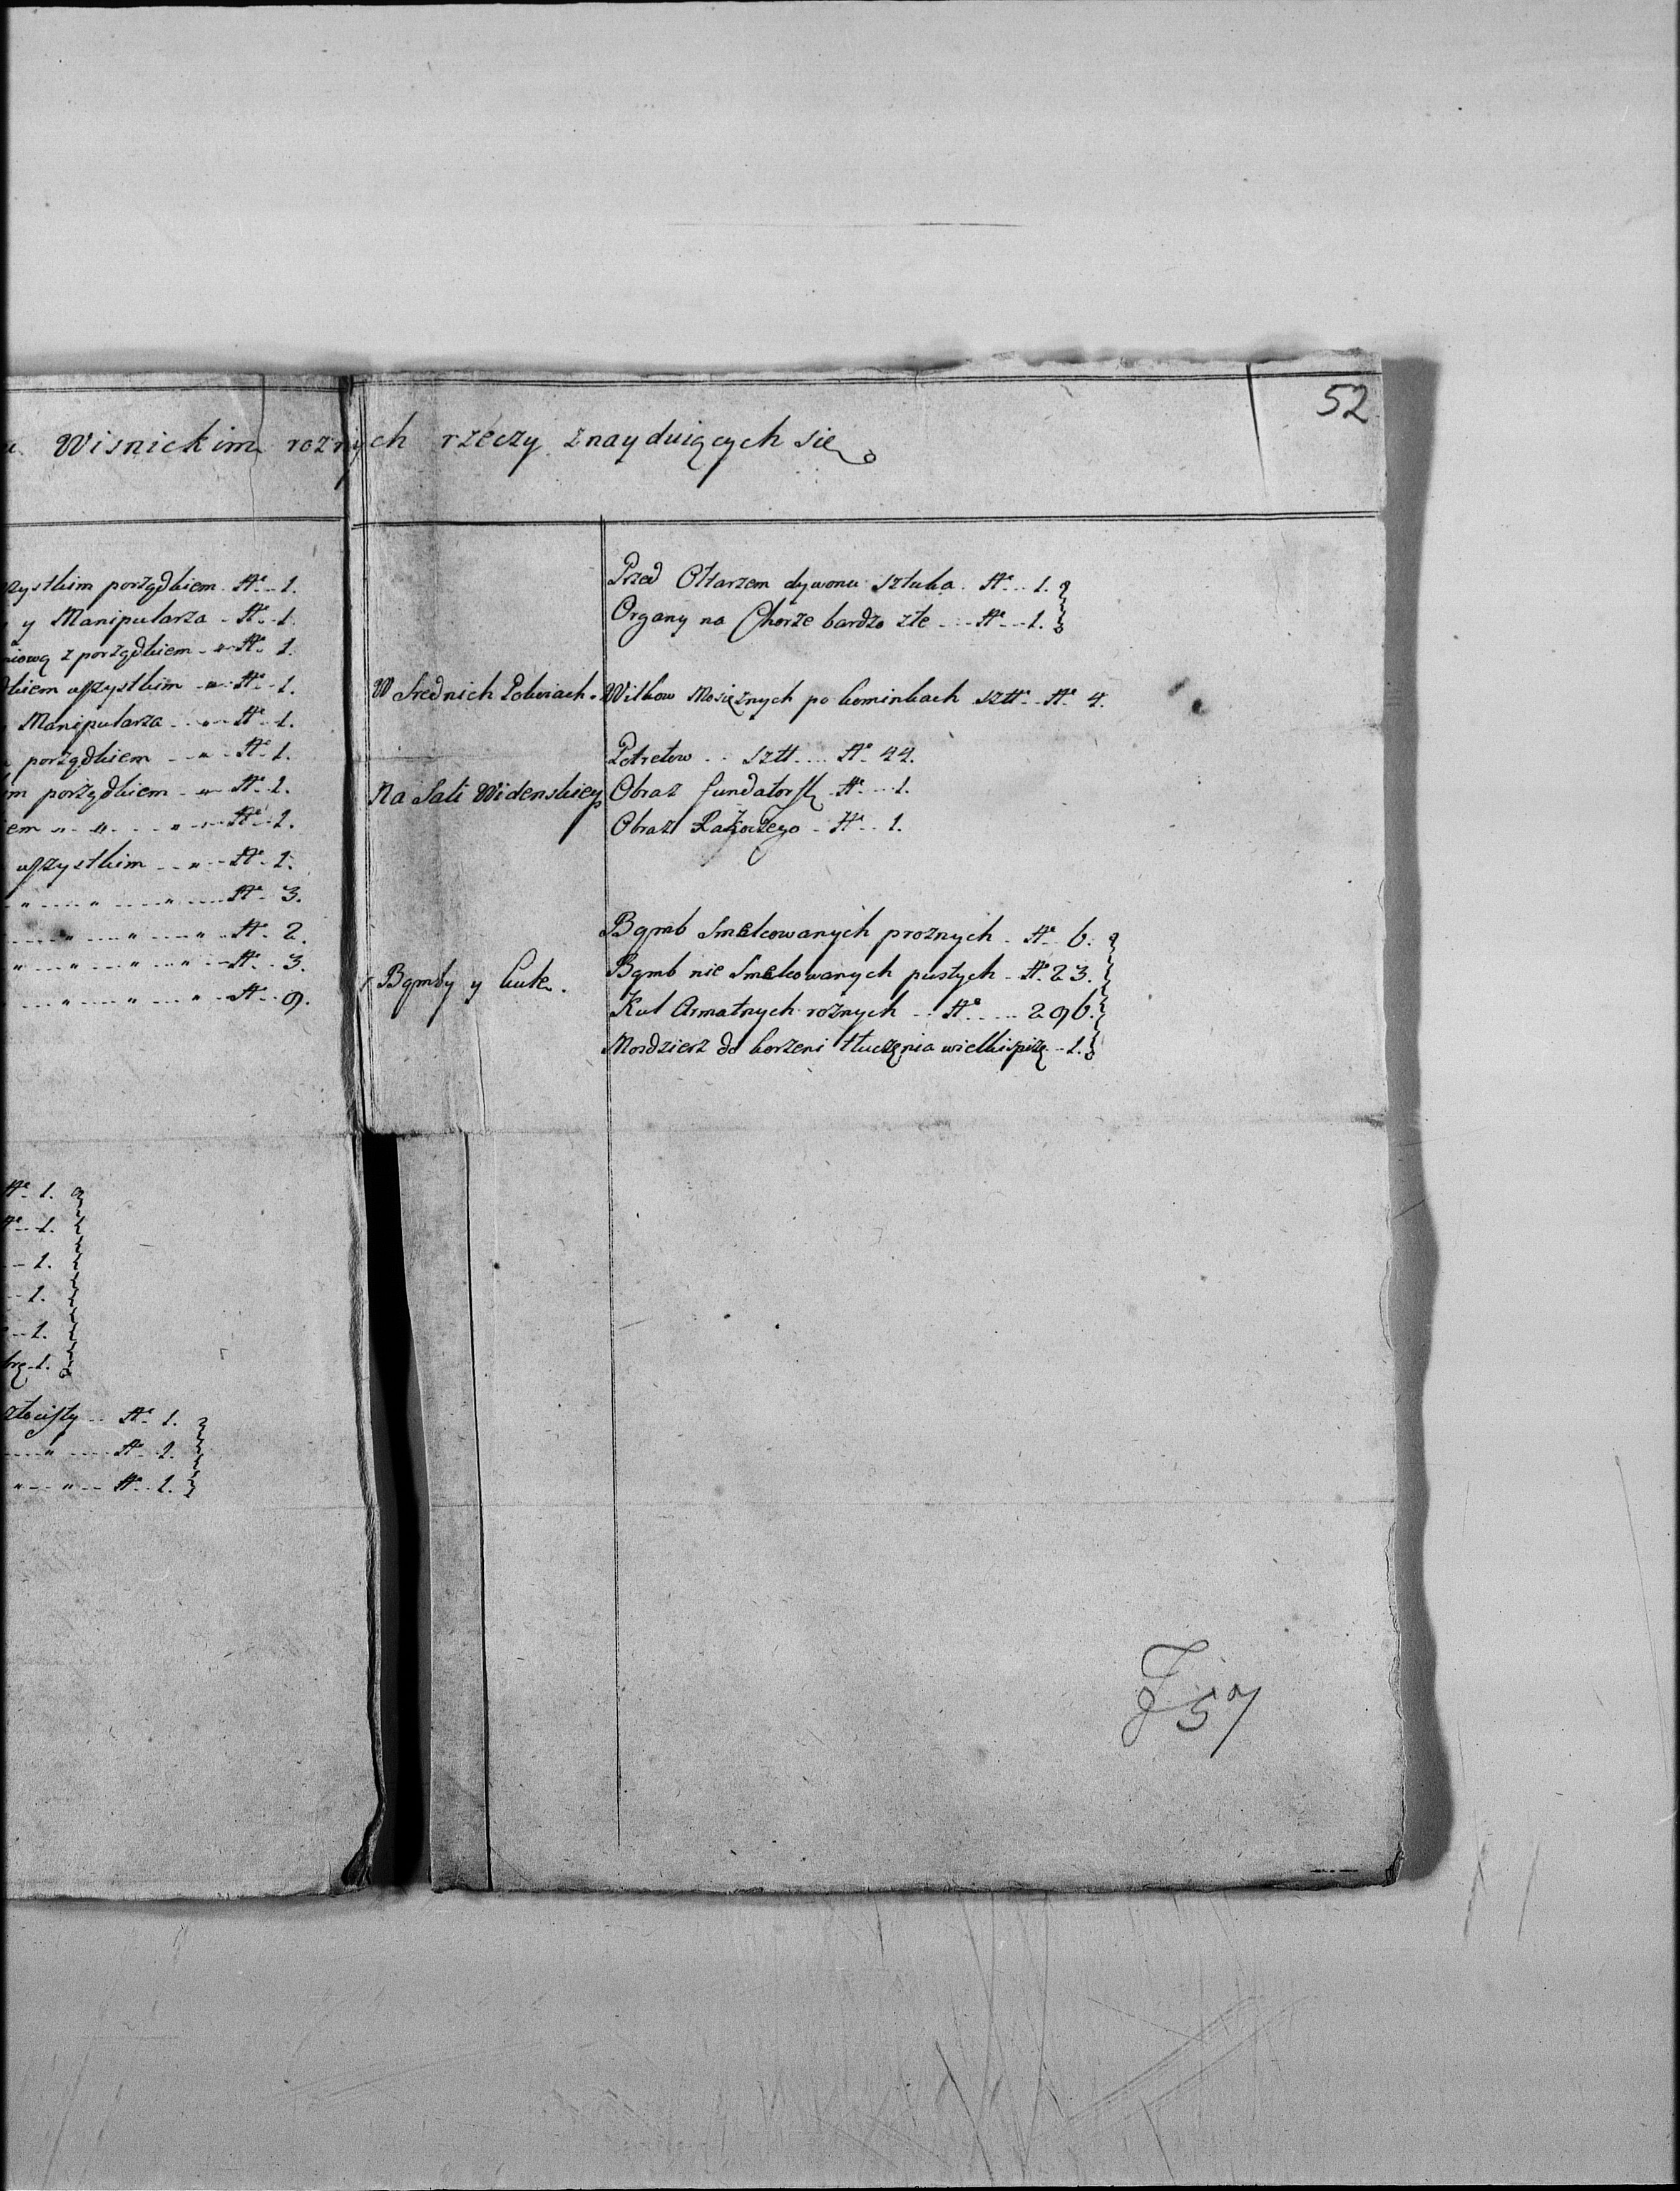 52
u Wisnickim roznych rzeczy znayduiących się
zystkim porządkiem Nº 1.
y Manipularza Nº 1.
niową z porządkiem Nº 1.
dkiem wszystkim Nº 1.
Manipularza Nº 1.
porządkiem Nº 1.
m porządkiem Nº 1.
iem Nº 1.
wszystkim Nº 1.
Nº 3.
Nº 2.
Nº 3.
Nº 9.
Nº 1.
Nº 1.
1.
1.
1.
1.
złocisty Nº 1.
Nº 1.
Nº 1.
Przed Ołtarzem dywonu sztuka Nº 1.
Organy na Chorze bardzo złe Nº 1.
W Srednich Pokoiach. Wilkow Mosięznych po kominkach sztt. Nº 4.
Potretow sztt Nº 44.
Na Sali Widenskiey Obraz fundatorsk Nº 1.
Obraz Nº 1.
Bąmb Smelcowanych proznych Nº 6.
Bąmby y kule. Bąmb nie Smelcowanych pustych Nº 23.
Kul Armatnych roznych Nº 296.
Mozdzierz do korzeni tłuczęnia wielki spiżę 1.
F 57